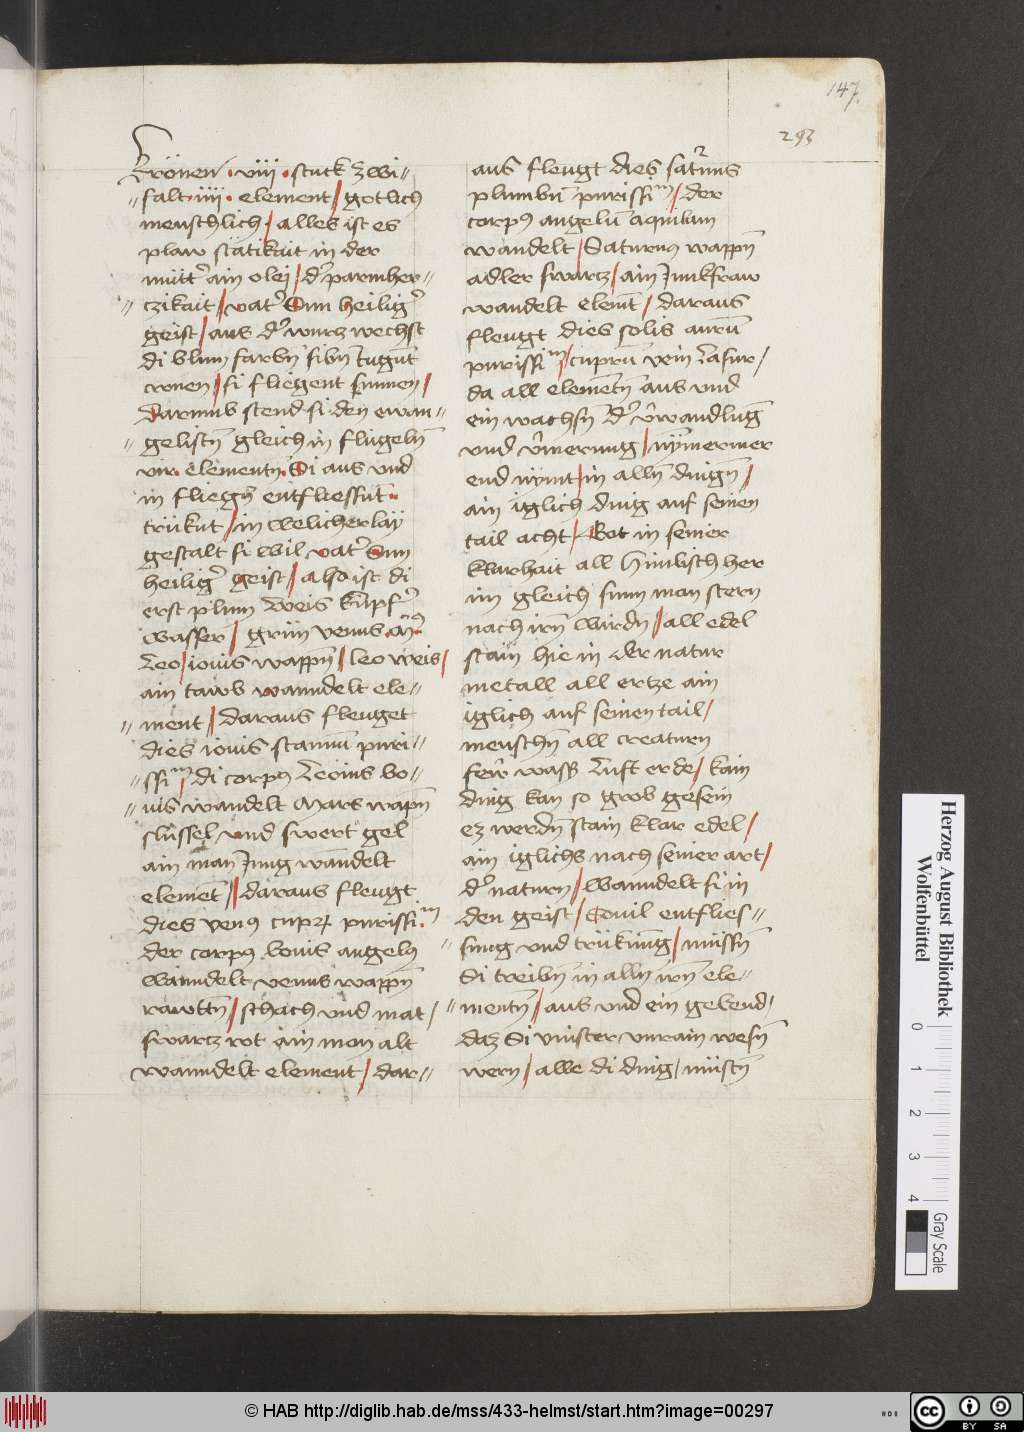 147.
293
krönen · viiii · stuck zwi=
=falt · iiii · element / gotlich
menschlich / alles ist es
plaw stätikait in der
mütt' ain olei / d' parmher=
=czikait / vat' Sun heilig'
geist / aus d' wurz wechst
di blum farbn̄ sibn̄ tugēnt
cronen / si fliegent sinnen /
darumb stend si den ewan=
=gelistn̄ gleich in flügeln̄
vir · elementn̄ · Si aus und
in fliegn̄ entfliessunt ·
trükut / in welicherlaÿ
gestalt si wil vat' Sun
heilig' geist / also ist di
erst plum weis kupf'
wasser / grün venus
Leo / iovis wappn̄ / leo weis /
ain tawb wanndelt ele=
=ment / daraus fleuget
dies iovis stannū puri=
=ssiᵐ / di corpꝰ Leoins bo=
=uis wandelt Mars wapn̄
slüssel und swert gel
ain man Jung wandelt
element / daraus fleugt
dies venꝰ cupꝝ purissi.ᵐ
der corpꝰ bouis angelꝰ
wanndelt venus wappn̄
rawttn̄ / schach und mat /
swarcz rot ain mon alt
wanndelt element / dar=
aus fleugt dies saturnus
plumbū purissiᵐ / der
corpꝰ angelū aquilam
wandelt / Saturnꝰ wappn̄
adler swarcz / ain Junkfraw
wandelt elemt / daraus
fleugt dies solis aurū
purissiᵐ / cuprū vein Lasur /
da all elemētn̄ aus und
ein wachsn̄ d' v̄wandlūg
und v̄nnerung / nÿmermer
end nÿmt / in alln̄ dingn̄ /
ain iglich ding auf seinen
tail acht / Got in seiner
klarhait all himlisch her
im gleich sunn man stern
nach irn̄ wirdn̄ / all edel
stain hie in der natur
metall all ertze ain
iglich auf seinen tail /
menschn̄ all creaturn
fewr wass' Luft erde / kain
ding kan so grob gesein
ez werdn̄ stain klar edel /
ain iglichs nach seiner art /
d' naturn / wanndelt si in
den geist / Souil entflies=
=sung und trükūng / müssn̄
Si treibn̄ in alln̄ irn̄ ele=
=mentn̄ / aus und ein gebend /
daz Si vinster unrain wesn̄
wern / alle di ding / müstn̄
Herzog August Bibliothek
Wolfenbüttel
0 1 2 3 4
Gray Scale
© HAB http://diglib.hab.de/mss/433-helmst/start.htm?image=00297
HAB
cc BY SA